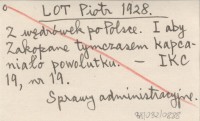 LOT Piotr 1928.
Z wędrówek po Polsce. I aby
Zakopane tymczasem kapca-
niało powolutku. — IKC
19, nr 19.
Sprawy administracyjne.